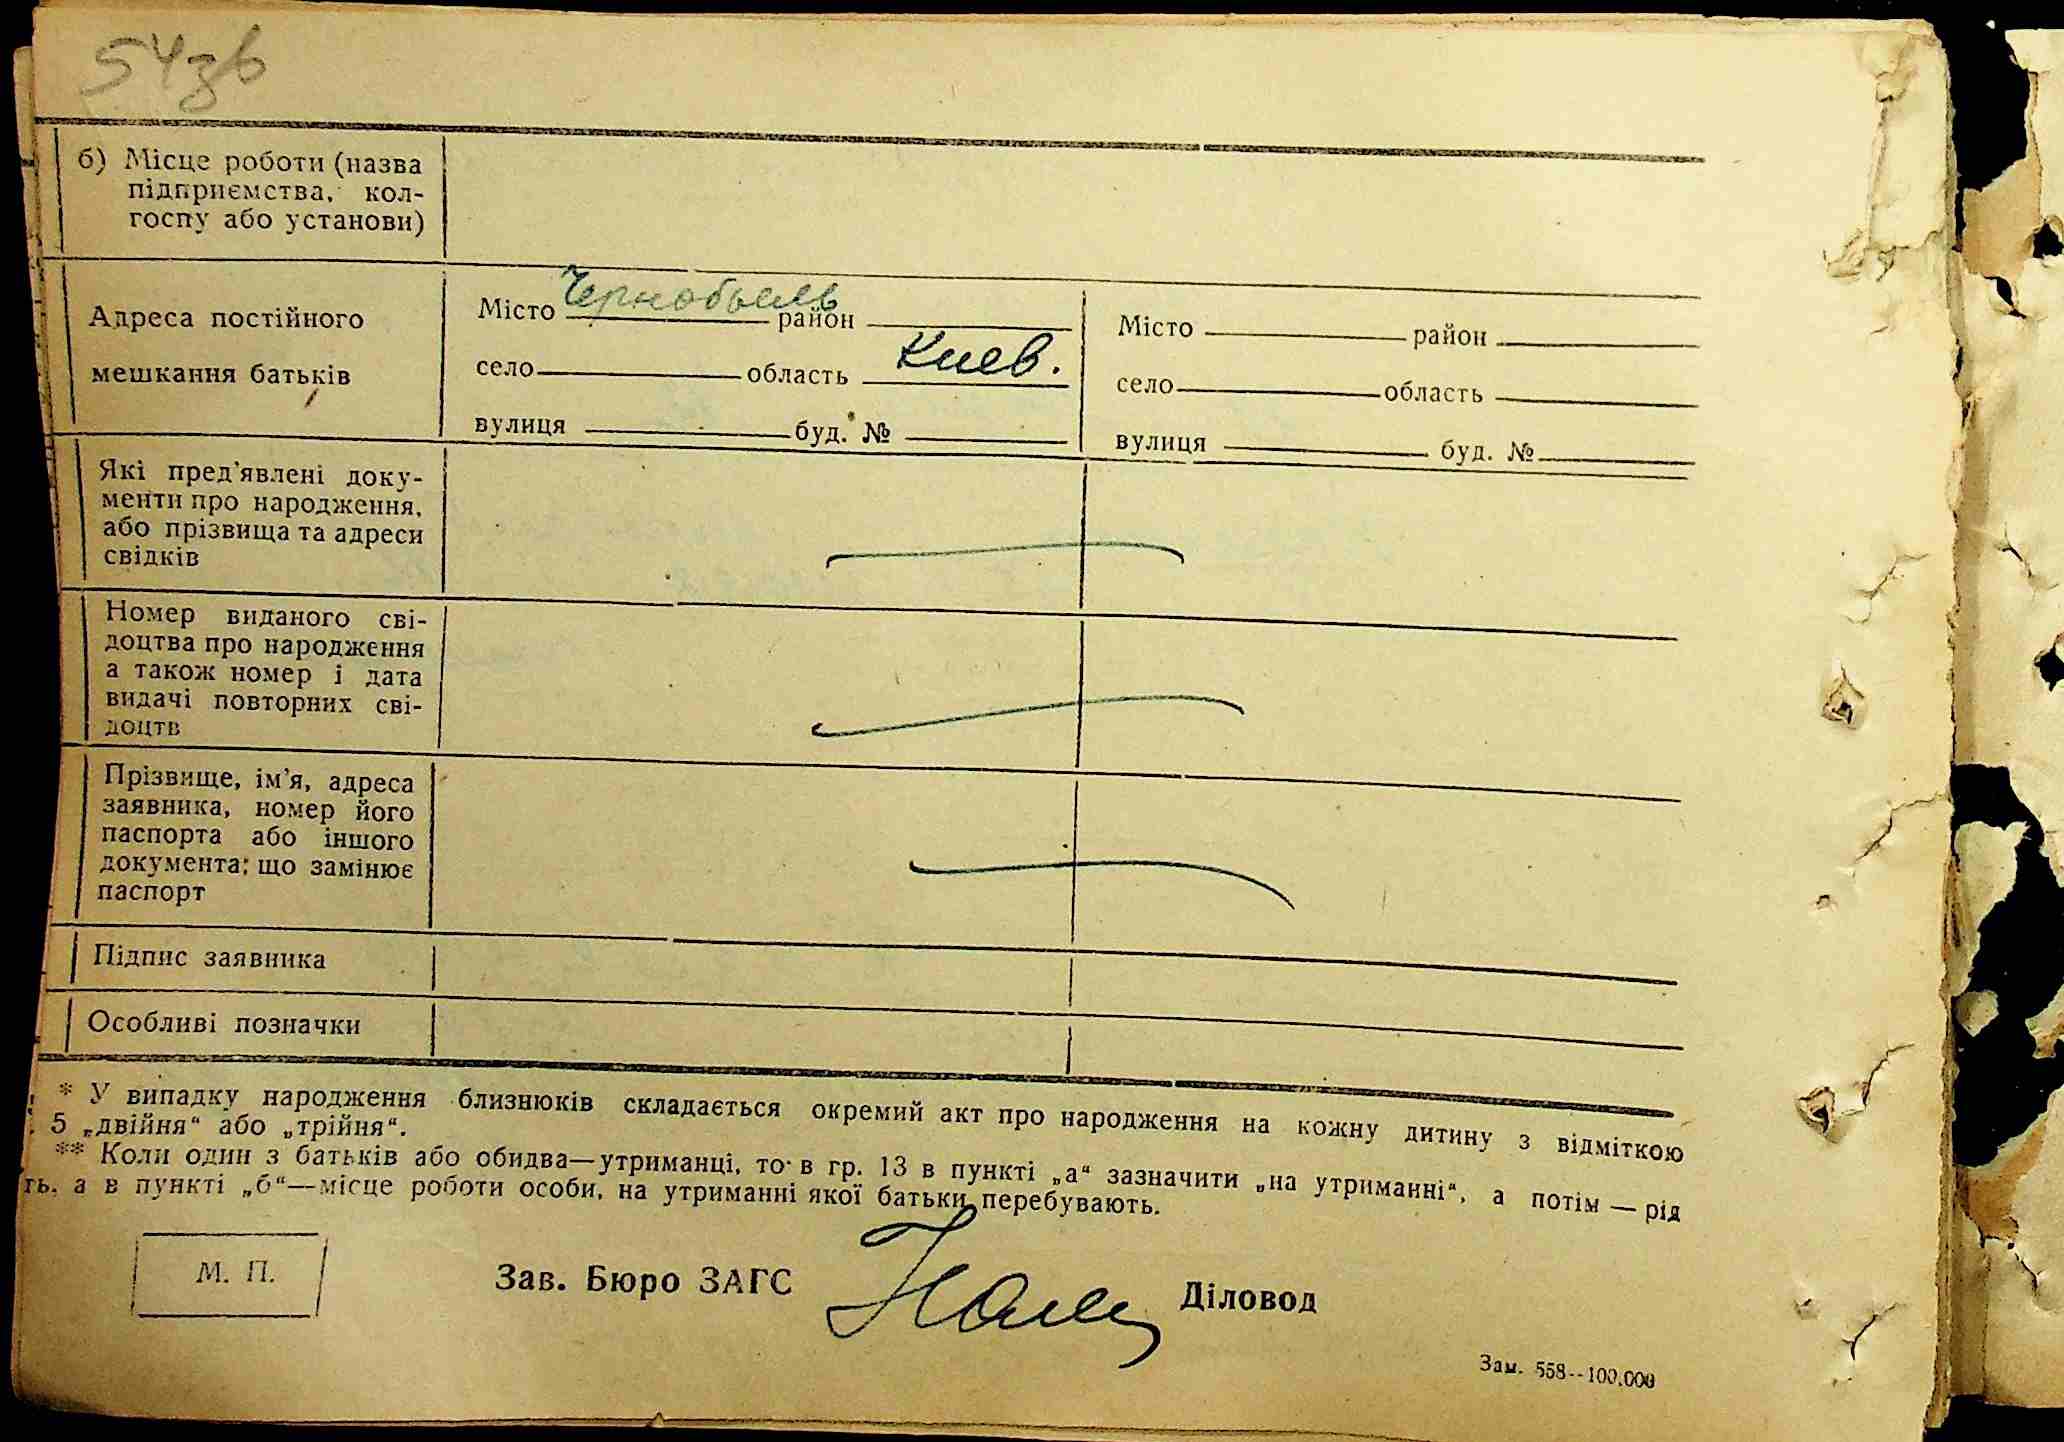 54зв
б) Місце роботи (назва
підприємства, кол-
госпу або установи)
Адреса постійного
мешкання батьків
Місто Чернобыль район
село область Киев.
вулиця буд. №
Місто район
село область
вулиця буд. №
Які пред'явлені доку-
менти про народження,
або прізвища та адреси
свідків
Номер виданого сві-
доцтва про народження
а також номер і дата
видачі повторних сві-
доцтв
Прізвище, ім'я, адреса
заявника, номер його
паспорта або іншого
документа; що замінює
паспорт
Підпис заявника
Особливі позначки
* У випадку народження близнюків складається окремий акт про народження на кожну дитину з відміткою
5 „двійня“ або „трійня“.
** Коли один з батьків або обидва—утриманці, то в гр. 13 в пункті „а“ зазначити „на утриманні“, а потім — рід
ть, а в пункті „б“—місце роботи особи, на утриманні якої батьки перебувають.
М. П.
Зав. Бюро ЗАГС Діловод
Зам. 558--100.000